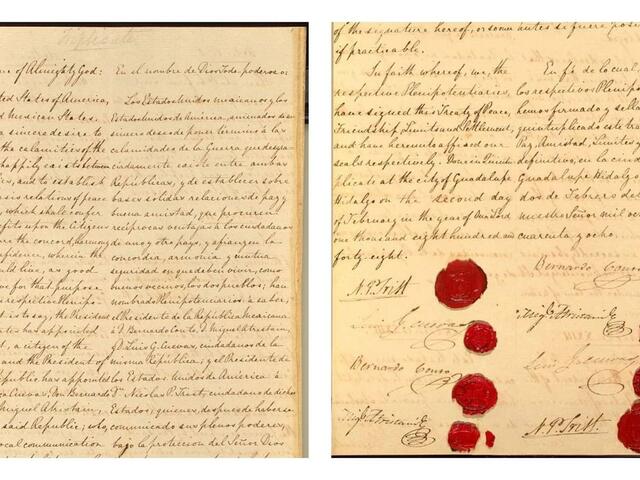 Triplicate
e of Almighty God:
ted States of America,
d Mexican States.
a sincere desire to
the calamities of the
happily exists between
ies, and to establish
basis relations of peace
, which shall confer
efits upon the citizens
ure the concord, harmony
fidence, wherein the
uld live, as good
ve for that purpose
respective Plenipo-
at is to say, the President
ates has appointed
t, a citizen of the
and the President of
Republic has appointed
Cuevas, Don Bernardo
Miguel Atristain,
said Republic; who,
ocal communication
En el nombre de Dios Todo-poderoso:
Los Estados Unidos mexicanos y los
Estados Unidos de América, animados de un
sincero deseo de poner término á las
calamidades de la Guerra que desgra-
ciadamente existe entre ambas
Repúblicas, y de establecer sobre
bases solidas relaciones de paz y
buena amistad, que procuren
reciprocas ventajas á los ciudadanos
de uno y otro pays, y afiancen la
concordia, armonia y mutua
seguridad en que deben vivir, como
buenos vecinos, los dos pueblos; han
nombrado Plenipotenciarios: a saber,
el Presidente de la República mexicana
á D. Bernardo Conto, D. Miguel Atristain,
y D. Luis G. Cuevas, ciudadanos de la
misma República; y el Presidente de
los Estados Unidos de América á
Dn. Nicolas P. Trist, ciudadano de dichos
Estados; quienes, despues de haberse
comunicado sus plenos poderes,
bajo la proteccion del Señor Dios
of the signature hereof, or sooner
if practicable.
In faith whereof, we, the
respective Plenipotentiaries,
have signed this Treaty of Peace,
Friendship, Limits and Settlement,
and have hereunto affixed our
seals respectively. Done in Quintu-
plicate at the city of Guadalupe
Hidalgo on the second day
of February in the year of Our Lord
one thousand eight hundred and
forty eight.
antes si fuere posi
En fé de lo cual,
los respectivos Plenipo
hemos firmado y sella
quintuplicado este trata
Paz, Amistad, Limites y
definitivo, en la ciuda
Guadalupe Hidalgo
dos de Febrero de
nuestro Señor mil och
cuarenta y ocho
N. P. Trist
Luis G. Cuevas
Bernardo Conto
Migl. Atristain
Bernardo Conto
Migl. Atristain
Luis G. Cuevas
N. P. Trist